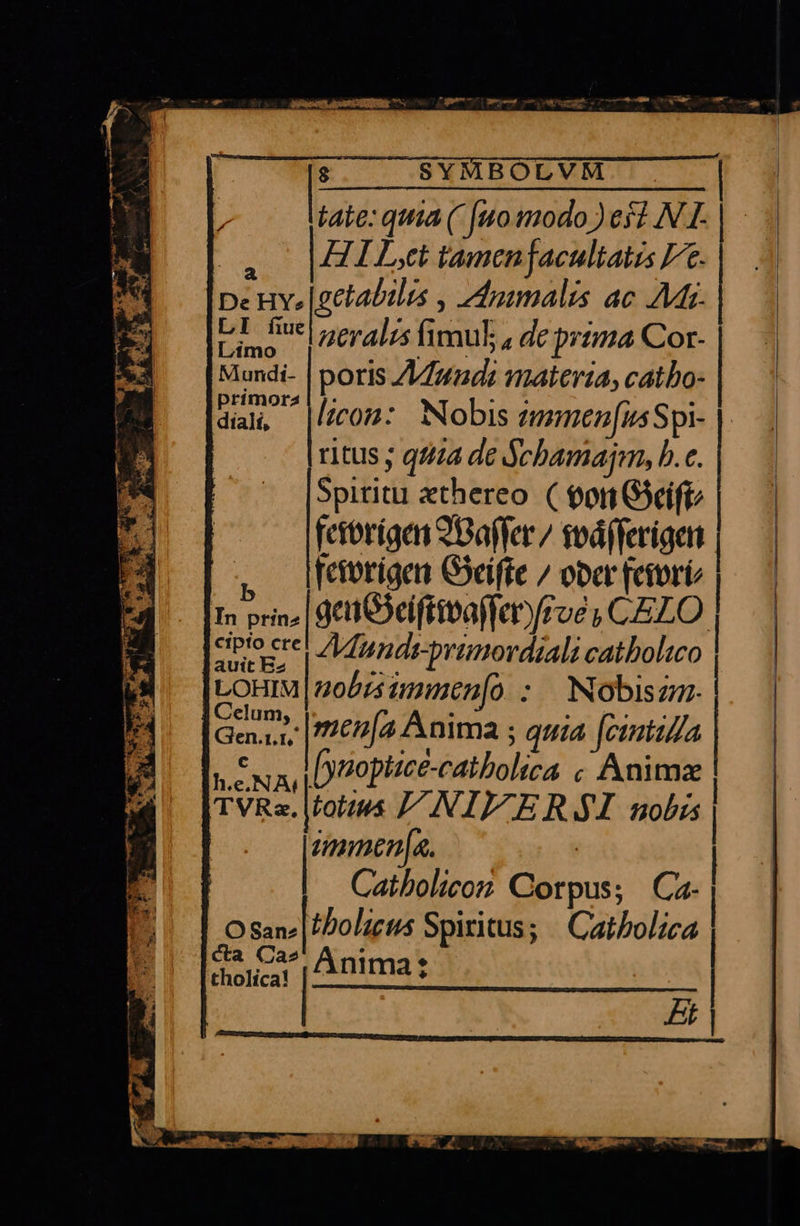 8 SYMBOLVM
tate: quia (ſuo modo) eſt NI-
HIL, et tamen facultatis Ve-
getabilis, Animalis ac Mi-
neralis ſimul, de prima Cor-
poris Mundi materia, catho-
licon: Nobis immenſus Spi-
ritus; quia de Schamajm, h.e.
Spiritu æthereo (von Geiſt⸗
fewrigen Waſſer / wäſſerigen
fewrigen Geiſte / oder fewri⸗
gen Geiſtwaſſer) ſive, CÆLO
Mundi-primordiali catholico
nobis immenſo: Nobis im-
menſa Anima; quia ſcintilla
ſynoptice-catholica c Animæ
totius VNIVERSI nobis
immenſa.
Catholicon Corpus; Ca-
tholicus Spiritus; Catholica
Anima:
Et
a
De HY⸗
LI ſiue
Limo
Mundi-
primor⸗
diali,
b
In prin⸗
cipio cre
auit E⸗
LOHIM
Celum,
Gen.1.1,
c
h.e. NA,
TVRæ.
O San⸗
cta Ca⸗
tholica!